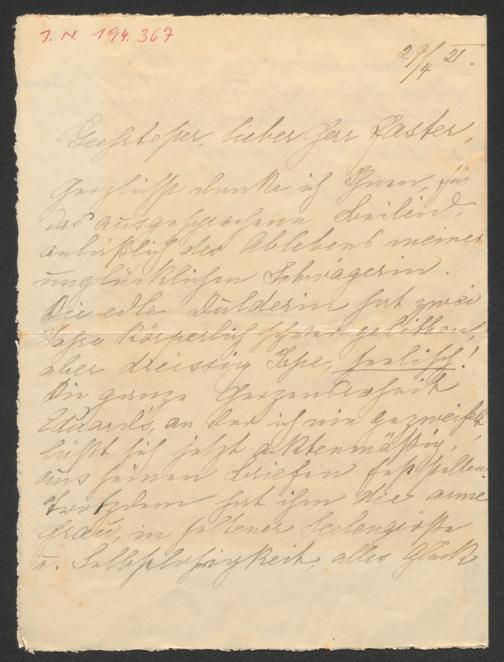 I. N. 194.367
29/4 21.
Geehrtester, lieber Herr Paster,
Herzlichst danke ich Ihnen, für
das ausgesprochene Beileid,
anläßlich des Ablebens meiner
unglücklichen Schwägerin.
Die edle Dulderin hat zwei
Jahre körperlich schwer gelitten,
aber dreissig Jahre, seelisch!
Die ganze Herzensroheit
Eduards, an der ich nie gezweifelt,
läßt sich jetzt aktenmäßig,
aus seinen Briefen feststellen.
Trotzdem hat ihm die arme
Frau, in seltener Seelengröße
u. Selbstlosigkeit, alles Glück